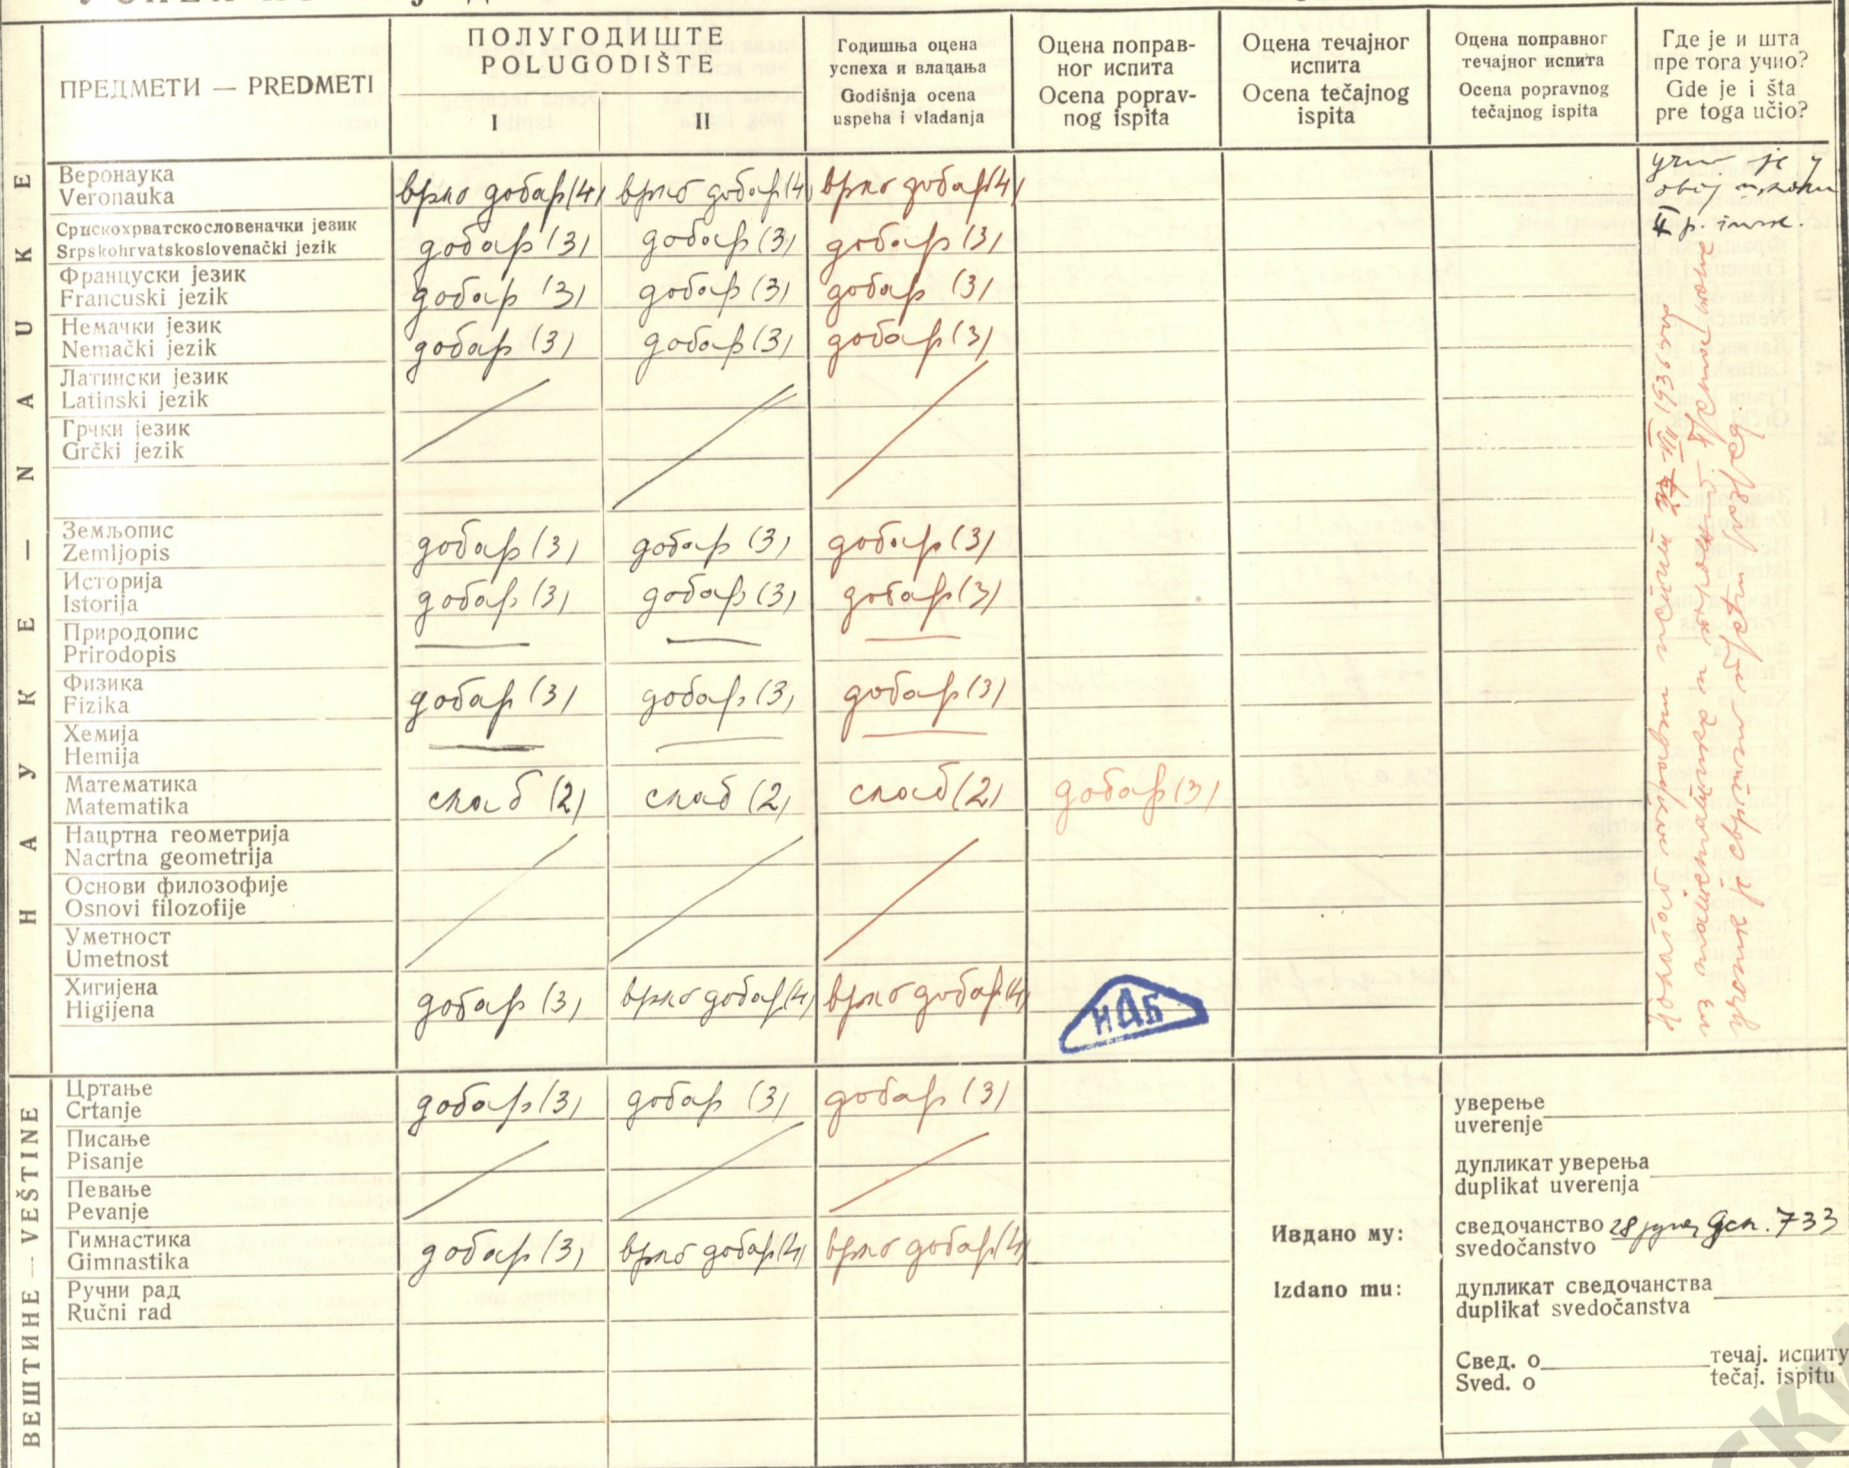 ПРЕДМЕТИ — PREDMETI
ПОЛУГОДИШТЕ
POLUGODIŠTE
I II
Годишња оцена
успеха и владања
Godišnja ocena
uspeha i vladanja
Оцена поправ-
ног испита
Ocena poprav-
nog ispita
Оцена течајног
испита
Ocena tečajnog
ispita
Оцена поправног
течајног испита
Ocena popravnog
tečajnog ispita
Где је и шта
пре тога учио?
Gde je i šta
pre toga učio?
НАУКЕ — NAUKE
Веронаука
Veronauka
врло добар (4) врло добар (4) врло добар (4)
Српскохрватскословеначки језик
Srpskohrvatskoslovenački jezik
добар (3) добар (3) добар (3)
Француски језик
Francuski jezik
добар (3) добар (3) добар (3)
Немачки језик
Nemački jezik
добар (3) добар (3) добар (3)
Латински језик
Latinski jezik
Грчки језик
Grčki jezik
Земљопис
Zemljopis
добар (3) добар (3) добар (3)
Историја
Istorija
добар (3) добар (3) добар (3)
Природопис
Prirodopis
Физика
Fizika
добар (3) добар (3) добар (3)
Хемија
Hemija
Математика
Matematika
слаб (2) слаб (2) слаб (2) добар (3)
Нацртна геометрија
Nacrtna geometrija
Основи филозофије
Osnovi filozofije
Уметност
Umetnost
Хигијена
Higijena
добар (3) врло добар (4) врло добар (4)
ИАБ
учио је у
овој школи
II р. гимн.
поправни испит 27-VIII 1936 год
из математике и
ученик је свршио трећи разред.
ВЕШТИНЕ — VEŠTINE
Цртање
Crtanje
добар (3) добар (3) добар (3)
Писање
Pisanje
Певање
Pevanje
Гимнастика
Gimnastika
добар (3) врло добар (4) врло добар (4)
Ручни рад
Ručni rad
Издано му:
Izdano mu:
уверење
uverenje
дупликат уверења
duplikat uverenja
сведочанство 28 јуна Дел. 733
svedočanstvo
дупликат сведочанства
duplikat svedočanstva
Свед. о течај. испиту
Sved. o tečaj. ispitu